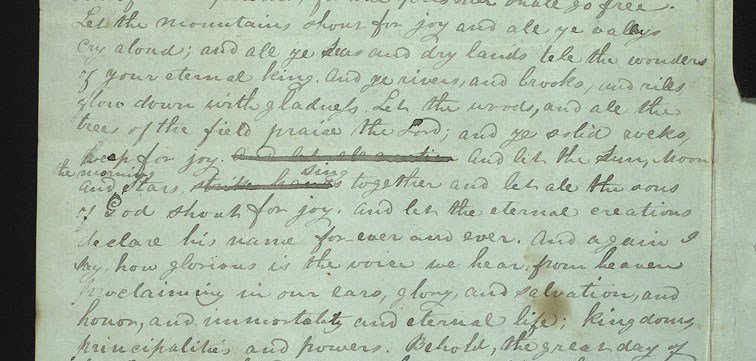 shall go free.
Let the mountains shout for joy and all ye valleys
cry aloud; and all ye Seas and dry lands tele the wonders
of your eternal king. And ye rivers, and brooks, and rills,
flow down with gladness. Let the woods, and all the
trees of the field praise the Lord; and ye solid rocks,
weep for joy. And let the Sun, Moon
the morning sing
and stars, together and let all the sons
of God shout for joy. And let the eternal creations
declare his name for-ever and ever. And again I
say, how glorious is the voice we hear, from heaven
proclaiming in our ears, glory, and salvation, and
honor, and immortality and eternal life; Kingdoms,
principalities and powers. Behold, the great day of